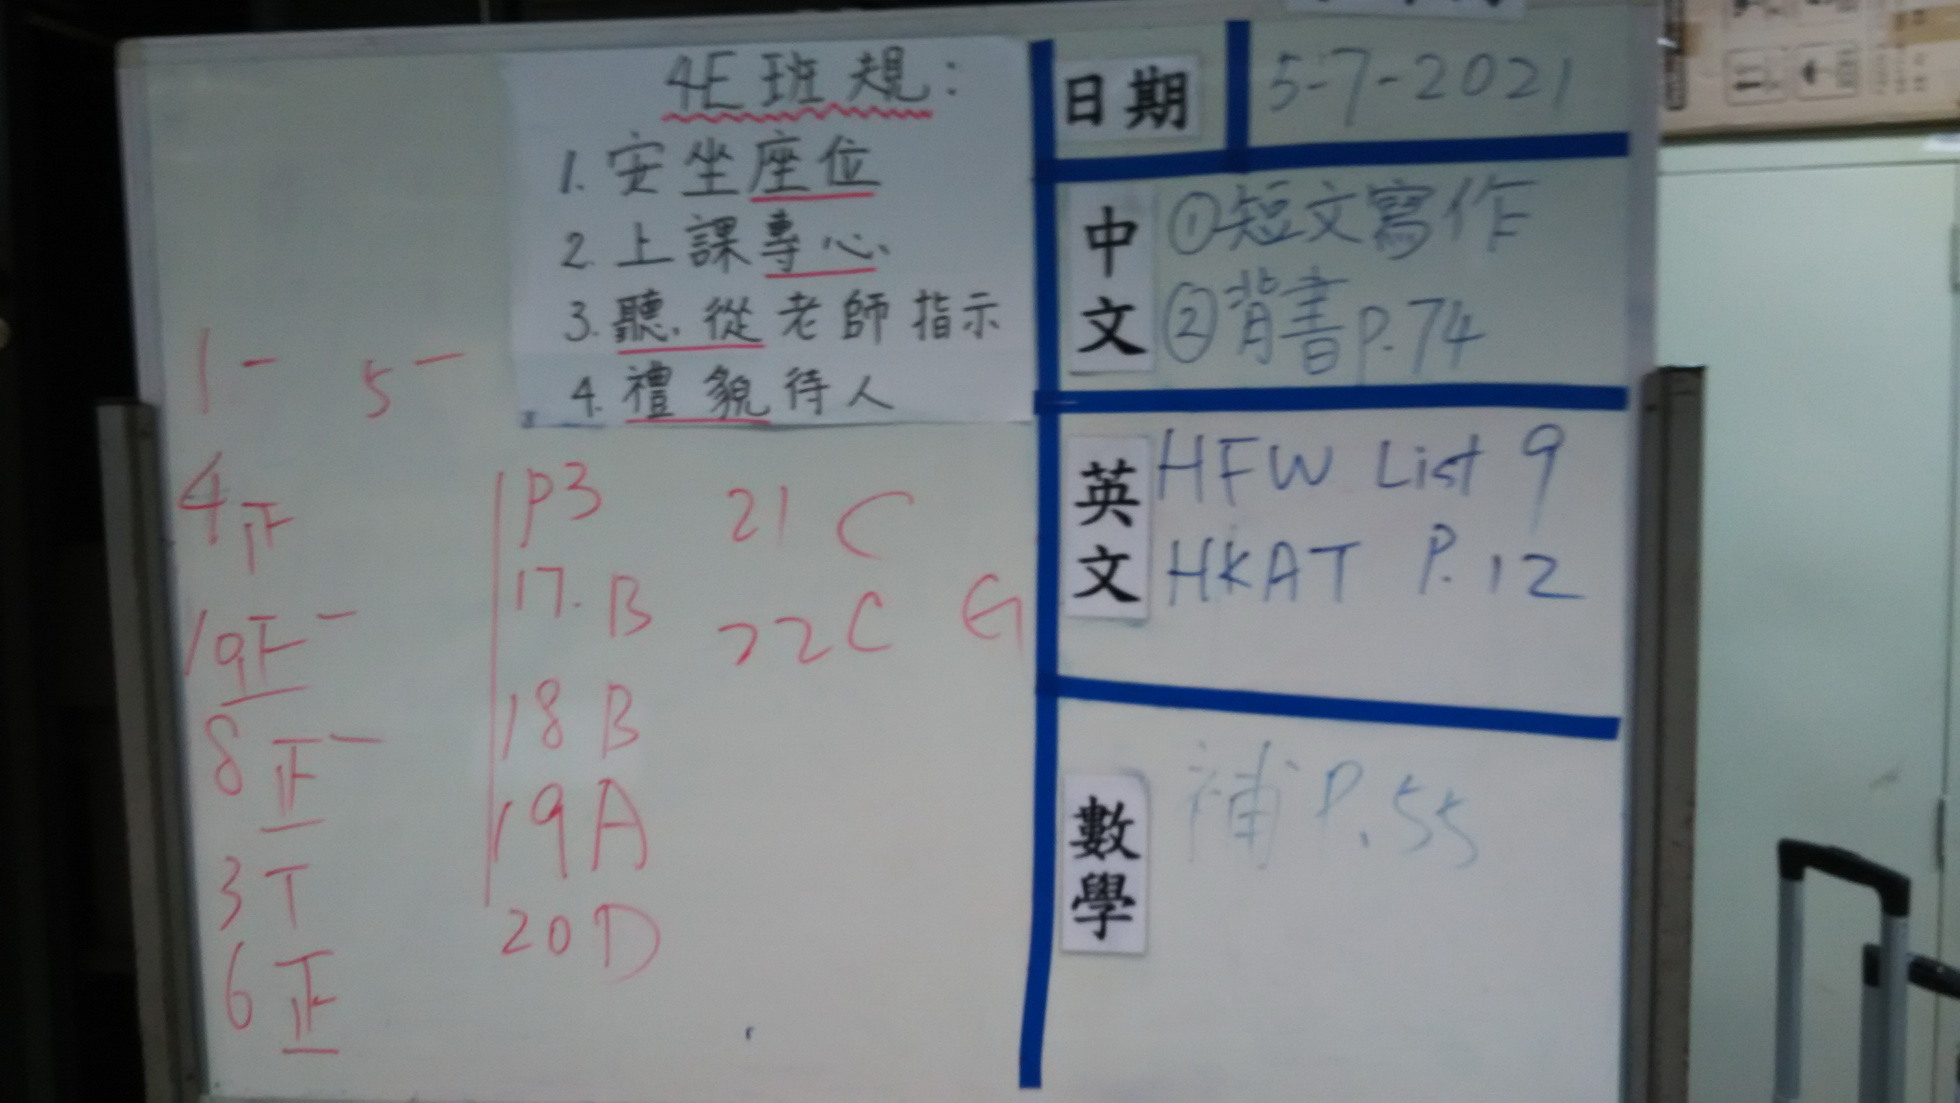 4E班規:
1. 安坐座位
2. 上課專心
3. 聽從老師指示
4. 禮貌待人
日期 5-7-2021
中文
①短文寫作
②背書p.74
英文
HFW List 9
HKAT P.12
數學
補P.55
1 一 5 一
4
10 正一
8 正一
3 T
6 正
P3
17. B
18 B
19 A
20 D
21 C
22 C